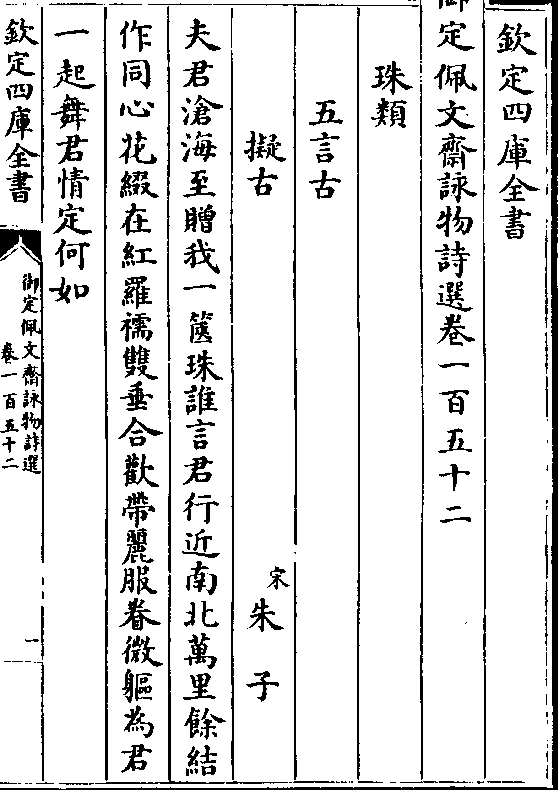 欽定四庫全書
御定佩文齋詠物詩選卷一百五十二
珠類
五言古
擬古
宋
朱子
夫君滄海至贈我一篋珠誰言君行近南北萬里餘結
作同心花綴在紅羅襦雙垂合歡帶麗服眷微軀為君
一起舞君情定何如
欽定四庫全書
御定佩文齋詠物詩選
卷一百五十二
一